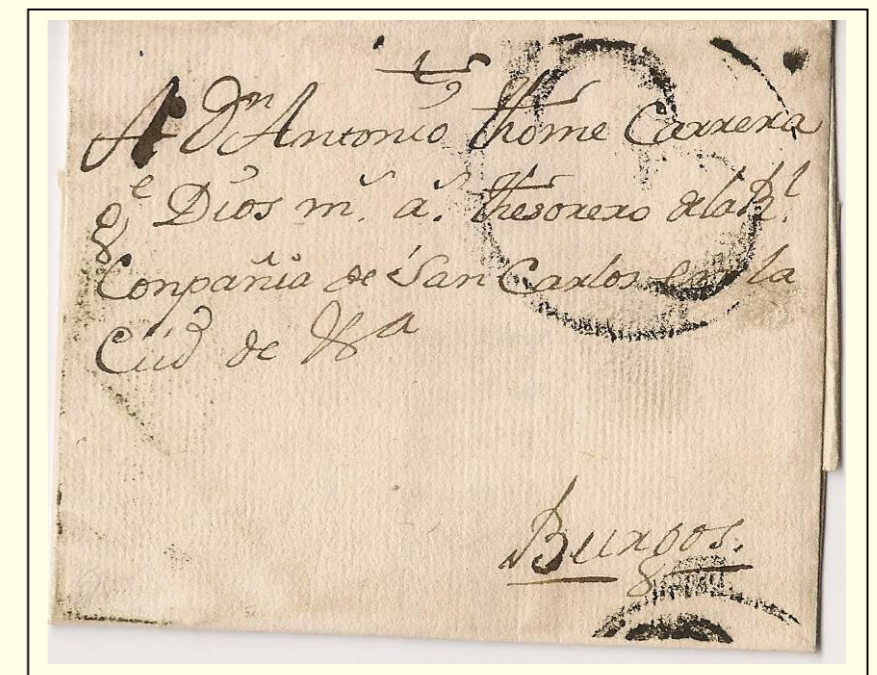 A Dn Antonio Thome Carrera
ge Dios ms. as. Thesorero de la Rl.
Conpañia de San Carlos en la
Ciud de
Burgos.